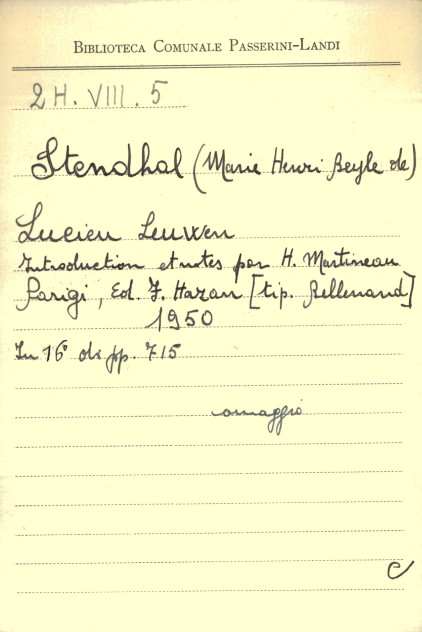 BIBLIOTECA COMUNALE PASSERINI-LANDI
2H. VIII. 5
Stendhal (Marie Henri Beyle de)
Lucien Leuwen
Introduction et notes par H. Martineau
Parigi, Ed. F. Hazan [tip. Bellenand]
1950
In 16° di pp. 715
omaggio
C